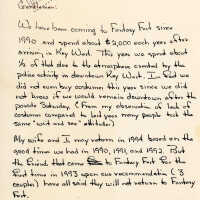 Gentlemen:
We have been coming to Fantasy Fest since
1990 and spend about $2,000 each year after
arriving in Key West. This year we spent about
½ of that due to the atmosphere created by the
police activity in downtown Key West. In fact we
did not even buy costumes this year since we did
not know if we would remain downtown after the
parade Saturday. (From my observation of lack of
costumes compared to last year many people took the
same "wait and see" attitude.)
My wife and I may return in 1994 based on the
good times we had in 1990, 1991, and 1992. But
the friends that came to Fantasy Fest for the
first time in 1993 upon our recommendation (3
couples) have all said they will not return to Fantasy
Fest.